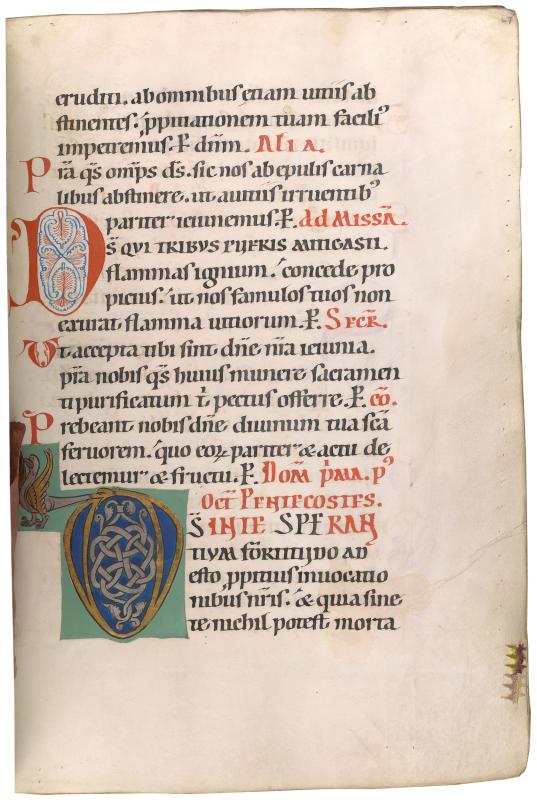 eruditi. ab omnibus etiam uitiis ab
stinentes. ꝓpitiationem tuam facili᾽
impetremus. P̲ dn̄m. ALIA.
Pr̄a q̄s om̄ps d̄s. sic nos ab epulis carna
libus abstinere. ut a uitiis irruentib᾽
pariter ieiunemus. P̲. Ad MISSĀ.
D̄S QVI TRIBVS PVERIS MITIGASTI.
flammas ignium. concede pro
picius. ut nos famulos tuos non
exurat flamma uitiorum. P̲. SECR̄.
Vt accepta tibi sint dn̄e nr̄a ieiunia.
pr̄a nobis q̄s huius munere sacramen
ti purificatum t̄ pectus offerre. P̲. cō.
Prebeant nobis dn̄e diuinum tua sc̄a
feruorem. quo eoꝝ pariter & actu de
lectemur & fructu. P̲. DOM̄ p̄MA. p᾽
OCT̄ PENTECOSTES.
D̄S IN TE SPERAN
TIVM FORTITVDO AD
esto ꝓpitius inuocatio
nibus nr̄is. & quia sine
te nichil potest morta